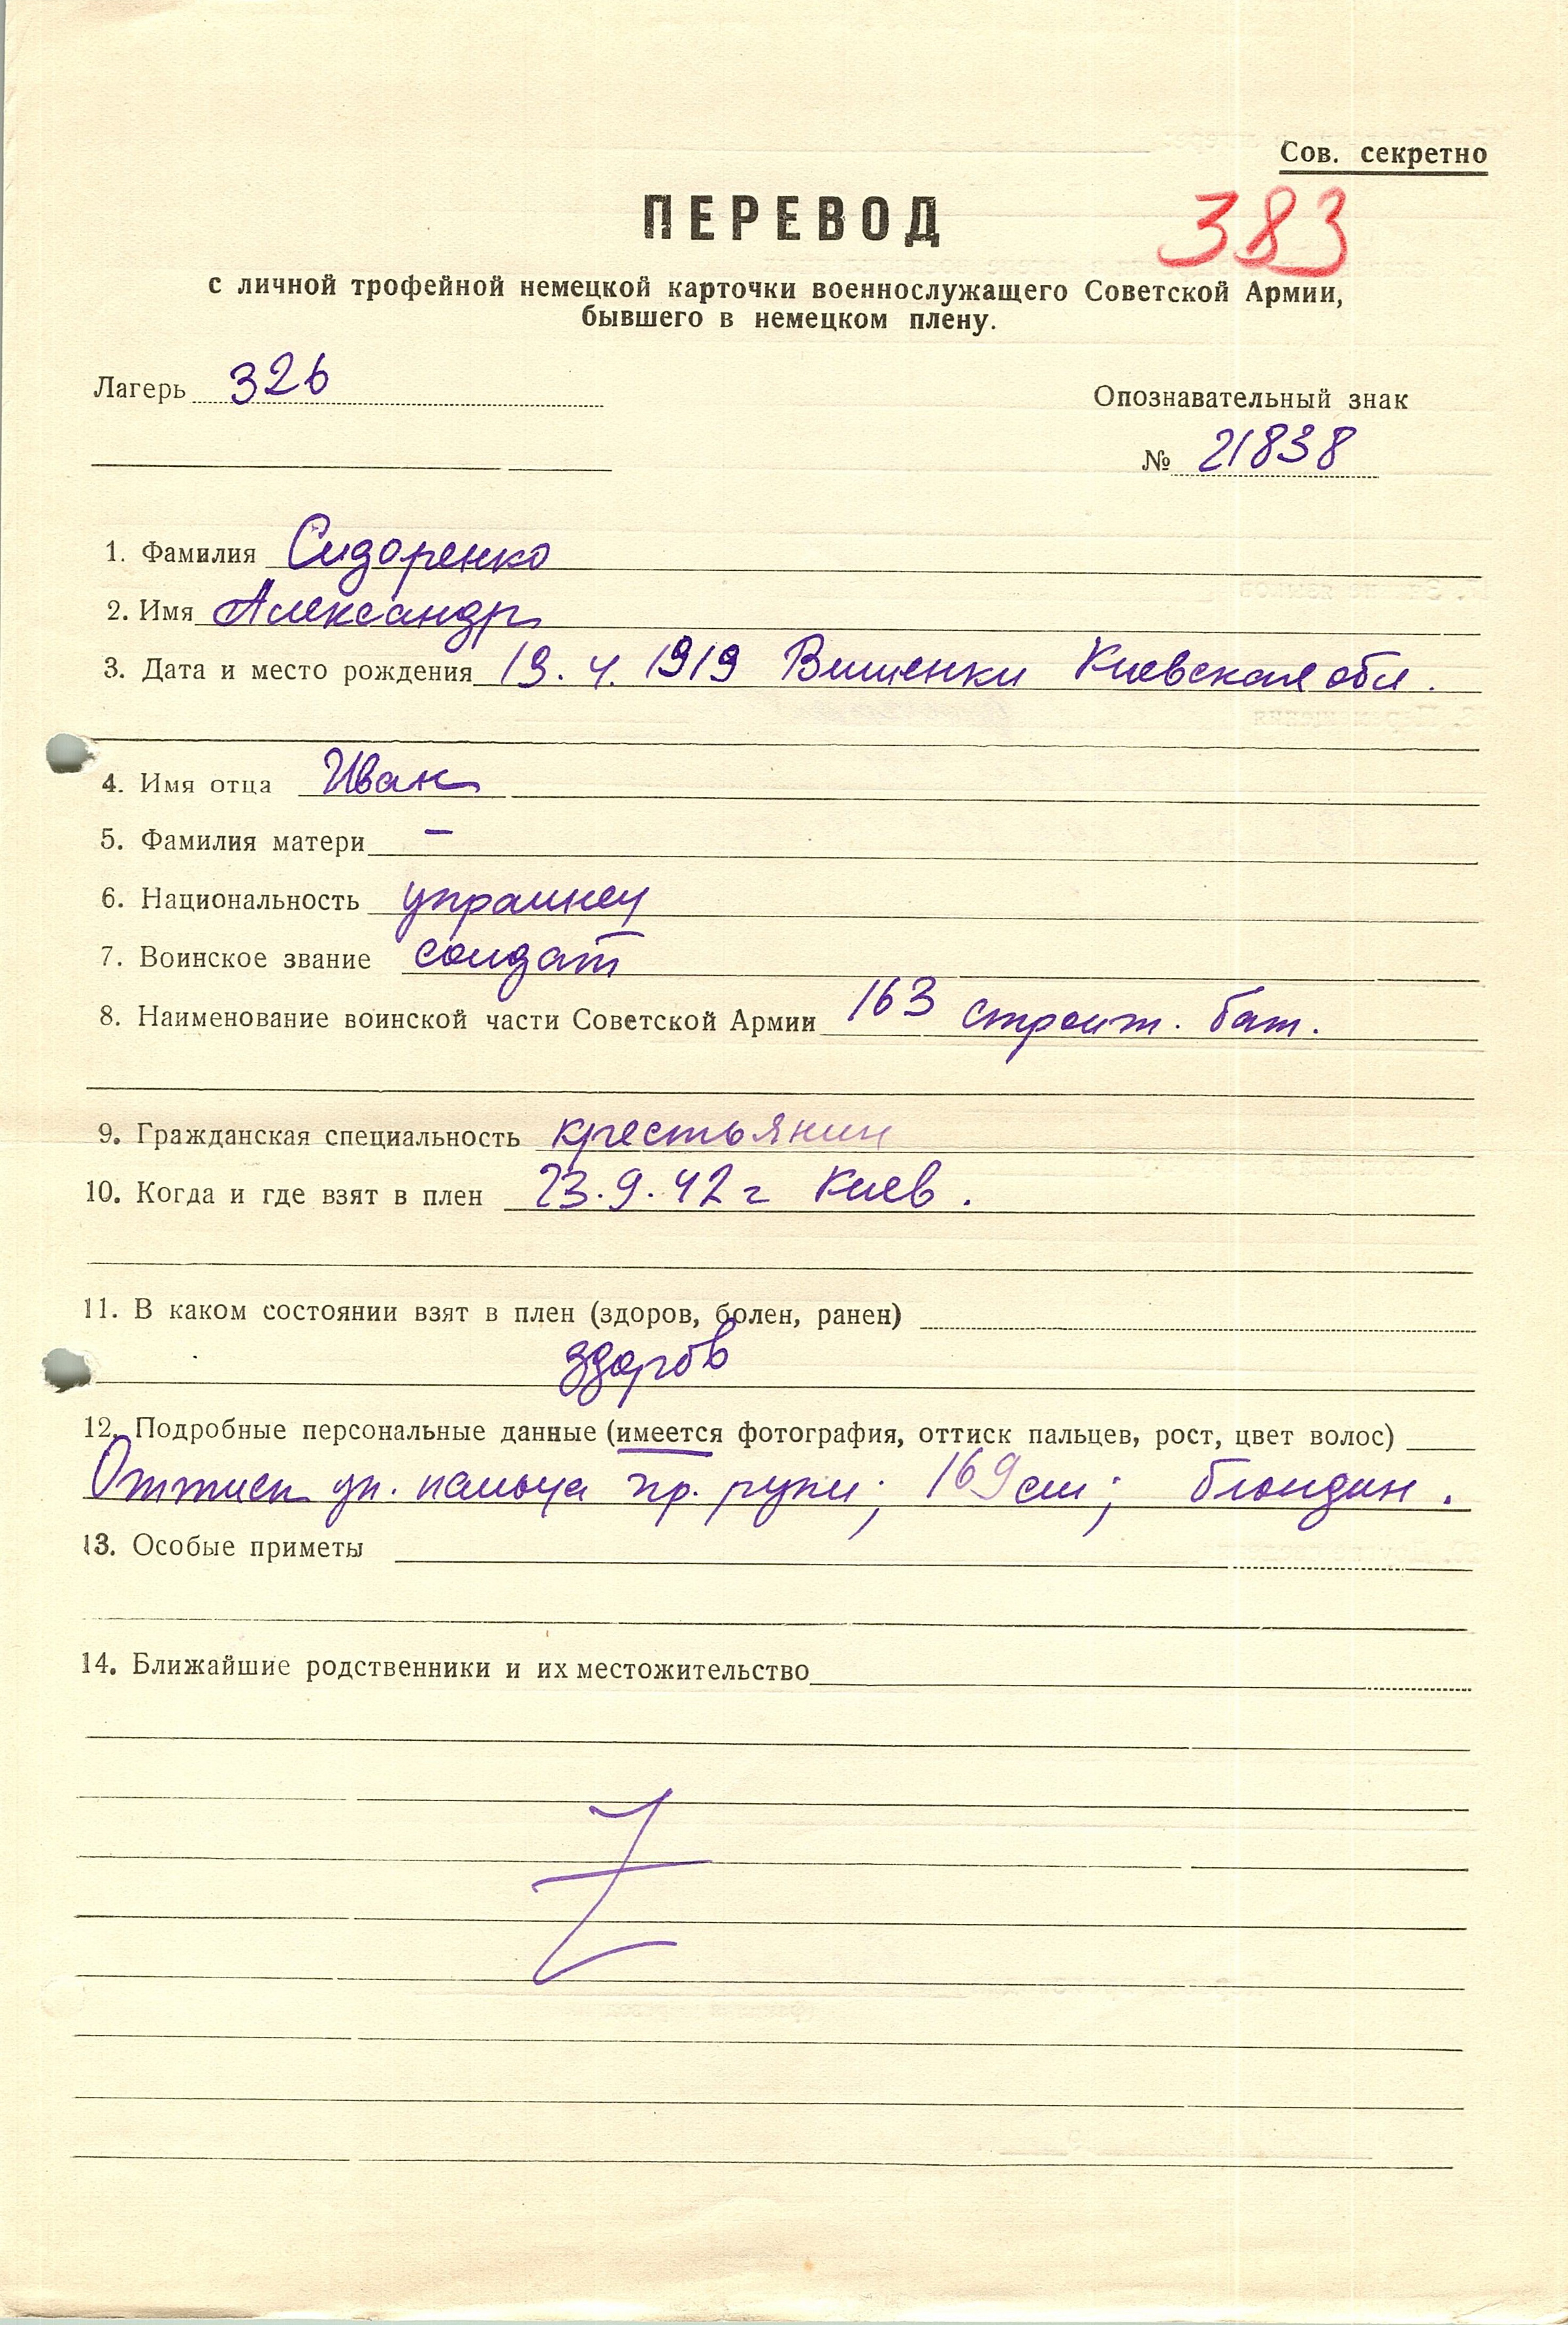 Сов. секретно
ПЕРЕВОД
383
с личной трофейной немецкой карточки военнослужащего Советской Армии,
бывшего в немецком плену.
Лагерь 326
Опознавательный знак
№ 21838
1. Фамилия Сидоренко
2. Имя Александр
3. Дата и место рождения 19. 4. 1919 Вишенки Киевская обл.
4. Имя отца Иван
5. Фамилия матери –
6. Национальность украинец
7. Воинское звание солдат
8. Наименование воинской части Советской Армии 163 строит. бат.
9. Гражданская специальность крестьянин
10. Когда и где взят в плен 23.9.42 г Киев.
11. В каком состоянии взят в плен (здоров, болен, ранен)
здоров
12. Подробные персональные данные (имеется фотография, оттиск пальцев, рост, цвет волос)
Оттиск ук. пальца пр. руки; 169 см; блондин.
13. Особые приметы
14. Ближайшие родственники и их местожительство
Z